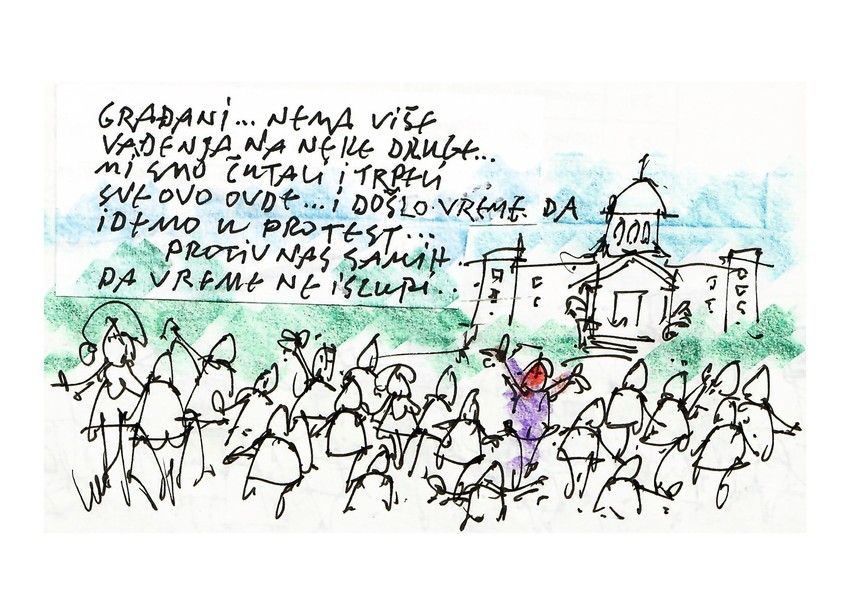 GRAĐANI... NEMA VIŠE
VAĐENJA NA NEKE DRUGE...
MI SMO ĆUTALI I TRPELI
SVE OVO OVDE... I DOŠLO VREME DA
IDEMO U PROTEST...
PROTIV NAS SAMIH.
DA VREME NE ISCURI..